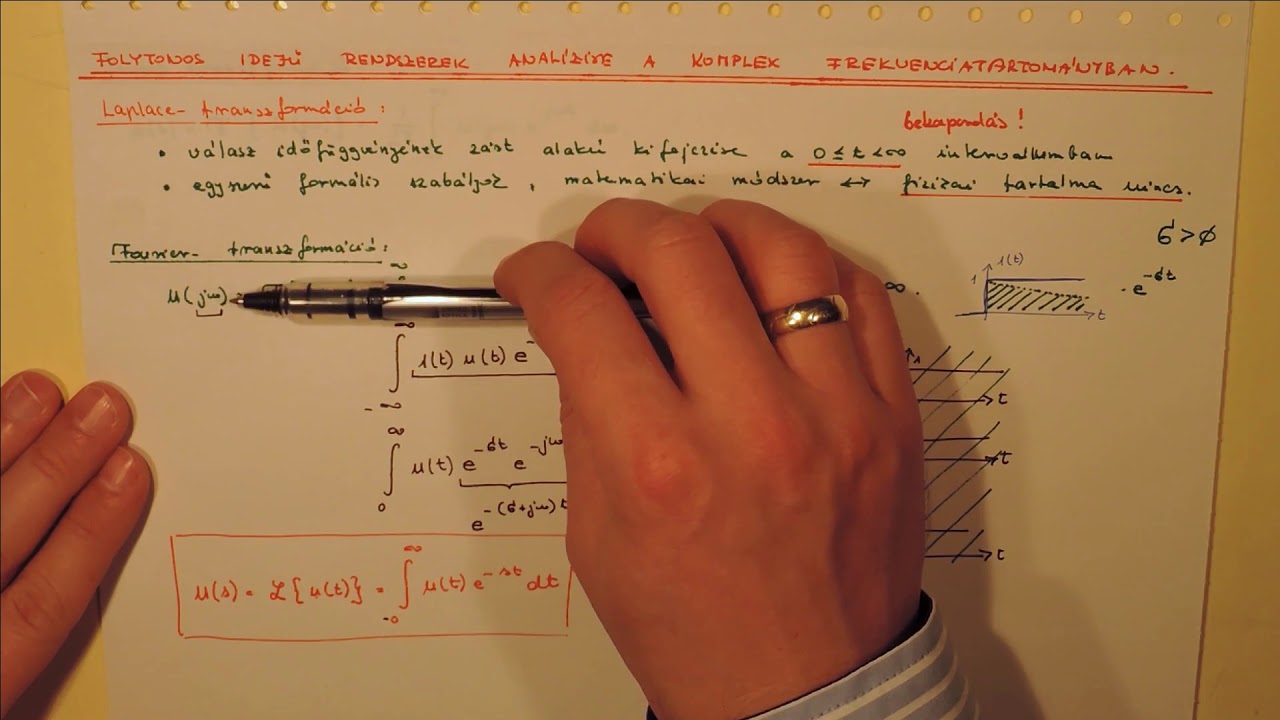 FOLYTONOS IDEJŰ RENDSZEREK ANALÍZISE A KOMPLEX FREKVENCIATARTOMÁNYBAN.
Laplace-transzformáció:
bekapcsolás!
• válasz időfüggvényének zárt alakú kifejezése a 0 ≤ t < ∞ intervallumban
• egyszerű formális szabályok, matematikai módszer ↔ fizikai tartalma nincs.
σ > 0
Fourier-transzformáció:
U(jω)
∞
∞.
1 1(t) t · e^{-σt}
∫_{-∞}^{∞} 1(t) u(t) e^-
1 t
∫_{0}^{∞} u(t) e^{-σt} e^{-jω
t
e^{-(σ+jω)t
t
U(s) = ℒ{u(t)} = ∫_{-0}^{∞} u(t) e^{-st} dt